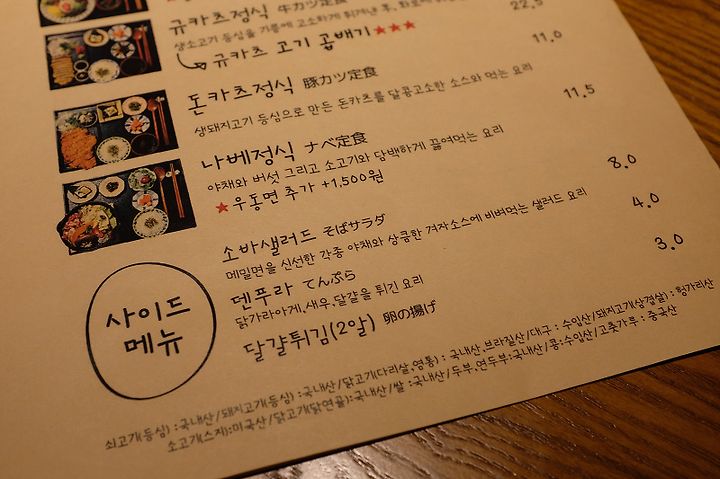 규카츠정식 牛カツ定食
생소고기 등심을 기름에 고소하게 튀겨낸 후, 화로에
22.5
규카츠 고기 곱빼기★★★
11.0
돈카츠정식 豚カツ定食
생돼지고기 등심으로 만든 돈카츠를 달콤고소한 소스와 먹는 요리
11.5
나베정식 ナベ定食
야채와 버섯 그리고 소고기와 담백하게 끓여먹는 요리
★우동면 추가 +1,500원
사이드
메뉴
소바샐러드 そばサラダ
8.0
메밀면을 신선한 각종 야채와 상큼한 겨자소스에 비벼먹는 샐러드 요리
덴푸라 てんぷら
4.0
닭가라아게,새우,달걀을 튀긴 요리
달걀튀김(2알) 卵の揚げ
3.0
쇠고기(등심) : 국내산/돼지고기(등심) : 국내산/닭고기(다리살,염통) : 국내산,브라질산/대구 : 수입산/돼지고기(삼겹살) : 헝가리산
소고기(스지):미국산/닭고기(닭연골):국내산/쌀 : 국내산/두부,연두부:국내산/콩:수입산/고춧가루 : 중국산